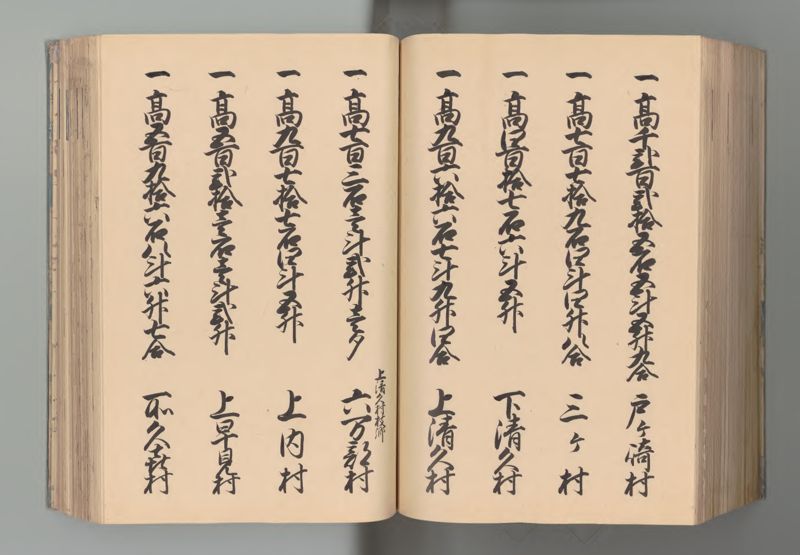 一 高千弐百弐拾五石五斗五升九合 戸ヶ崎村
一 高七百七拾九石四斗四升八合 三ヶ村
一 高四百拾七石六斗五升 下清久村
一 高九百六拾六石七斗九升四合 上清久村
上清久村枝郷
一 高七百二石壱斗弐升壱夕 六万部村
一 高九百七拾七石四斗五升 上内村
一 高五百弐拾壱石壱斗弐升 上早見村
一 高五百九拾六石八斗六升七合 所久喜村